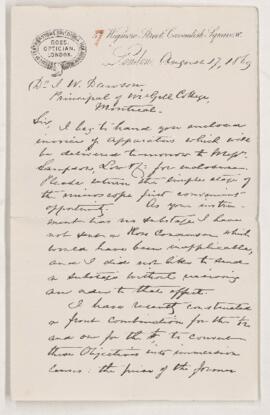 ROSS,
OPTICIAN,
LONDON.
7 Wigmore Street, Cavendish Square, W.
London, August 17, 1869
Dr J. W. Dawson
Principal of McGill College,
Montreal.
Sir, I beg to hand you enclosed
invoice of apparatus which will
be delivered tomorrow to Messrs
Sampson, Low & Co for enclosure.
Please return the simple stage of
the microscope first convenient
opportunity. As your instru-
ment has no substage I have
not sent a Ross Condenser which
would have been inapplicable,
and I did not like to send
a substage without receiving
an order to that effect.
I have recently constructed
a front combination for the 1/12
and one for the to convert
these Objectives into immersion
lenses: the price of the former